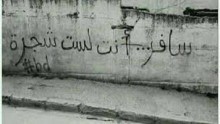 سافر... أنت لست شجرة
#bd